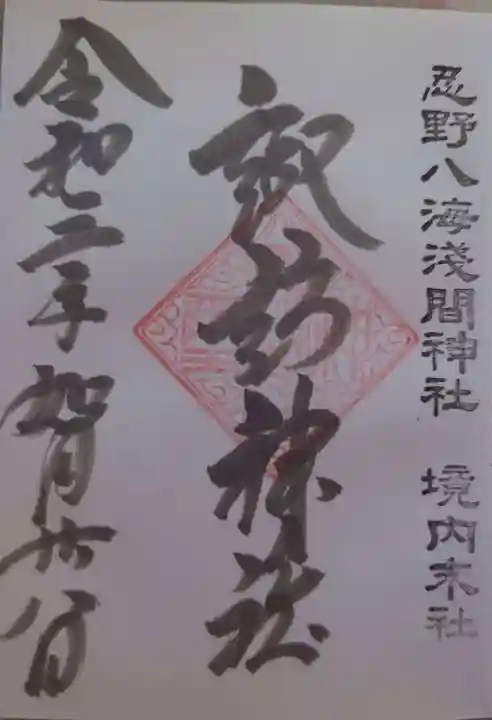 忍野八海浅間神社 境内末社
諏訪神社
令和二年如月廿八日